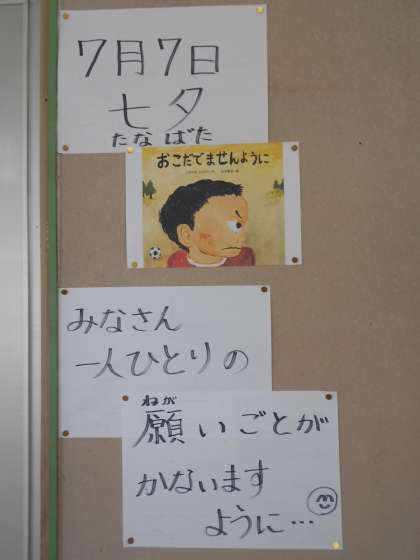 7月7日
七夕
たなばた
おこだでませんように
みなさん
一人ひとりの
ねが
願いごとが
かないます
ように…